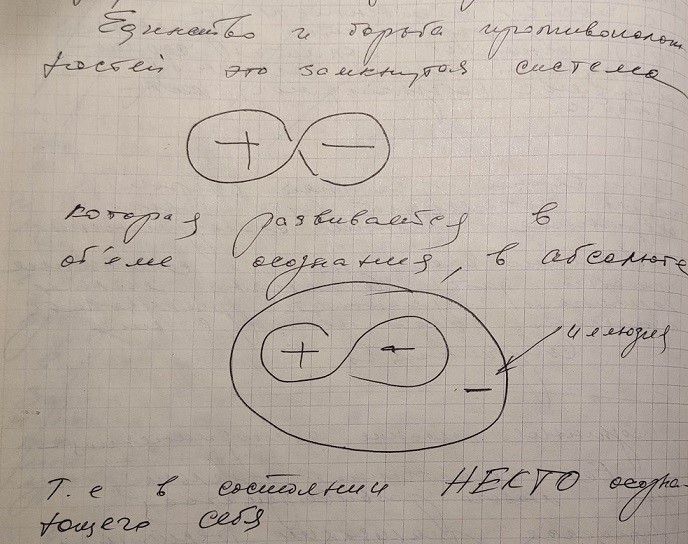 Единство и борьба противополож
ностей это замкнутая система
+ −
которая развивается в
объёме осознания, в абсолюте
+ −
иллюзия
−
Т.е в состоянии НЕКТО осозна-
ющего себя